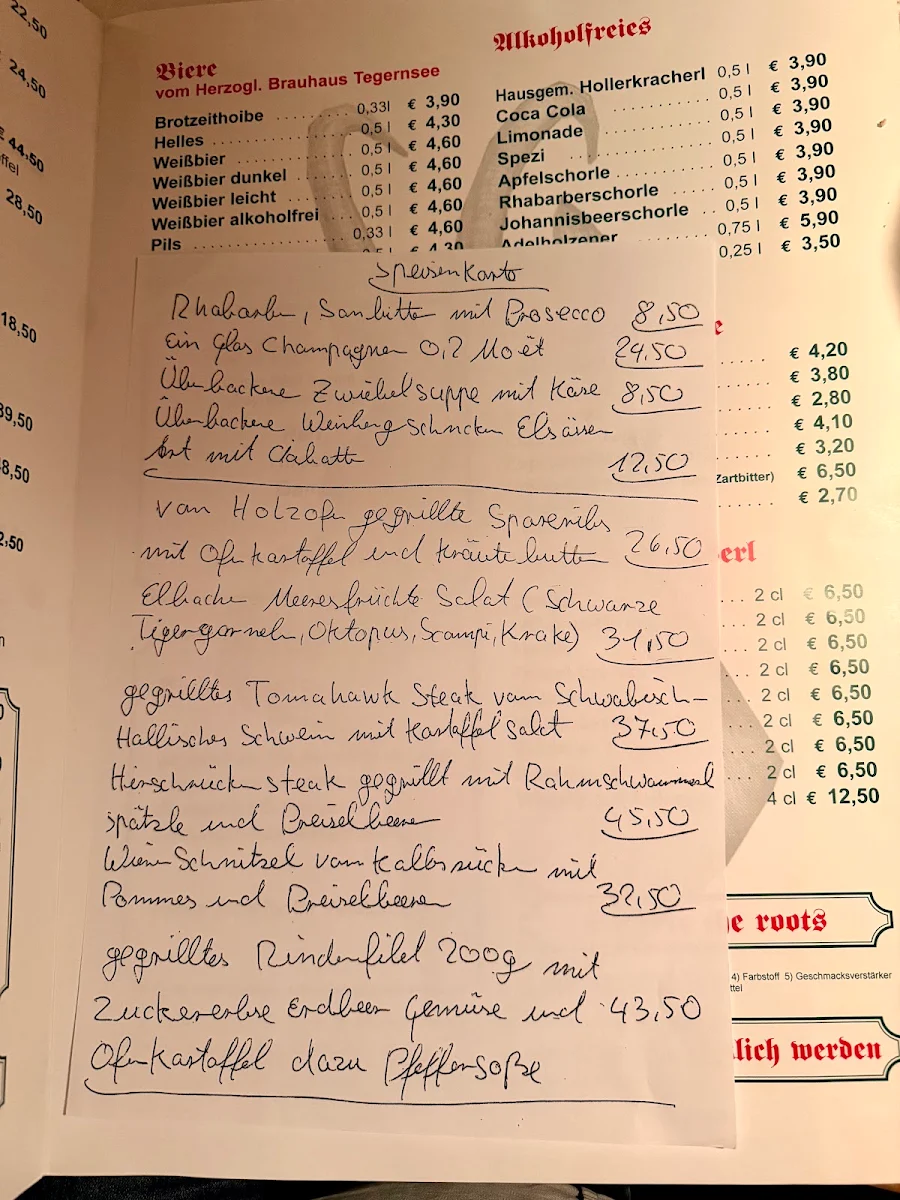 22,50
24,50
€ 44,50
ffel
28,50
18,50
39,50
8,50
2,50
Biere
vom Herzogl. Brauhaus Tegernsee
Brotzeithoibe ........ 0,33l € 3,90
Helles ........ 0,5 l € 4,30
Weißbier ........ 0,5 l € 4,60
Weißbier dunkel ........ 0,5 l € 4,60
Weißbier leicht ........ 0,5 l € 4,60
Weißbier alkoholfrei ... 0,5 l € 4,60
Pils ........ 0,33 l € 4,60
0,5 l € 4,30
Alkoholfreies
Hausgem. Hollerkracherl 0,5 l € 3,90
Coca Cola ........ 0,5 l € 3,90
Limonade ........ 0,5 l € 3,90
Spezi ........ 0,5 l € 3,90
Apfelschorle ........ 0,5 l € 3,90
Rhabarberschorle ...... 0,5 l € 3,90
Johannisbeerschorle .. 0,5 l € 3,90
Adelholzener ........ 0,75 l € 5,90
0,25 l € 3,50
Speisenkarte
Rhabarber, Sanbitter mit Prosecco 8,50
Ein Glas Champagner 0,2 Moët 24,50
Überbackene Zwiebelsuppe mit Käse 8,50
Überbackene Weinbergschnecken Elsässer
Art mit Ciabatta 12,50
vom Holzofen gegrillte Spareribs
mit Ofenkartoffel und Kräuterbutter 26,50
Elbacher Meeresfrüchte Salat (Schwarze
Tigergarneln, Oktopus, Scampi, Krake) 31,50
gegrilltes Tomahawk Steak vom Schwäbisch-
Hallisches Schwein mit Kartoffelsalat 37,50
Hirschrückensteak gegrillt mit Rahmschwammerl
spätzle und Preiselbeeren 45,50
Wiener Schnitzel vom Kalbsrücken mit
Pommes und Preiselbeeren 32,50
gegrilltes Rinderfilet 200g mit
Zuckererbse Erdbeer Gemüse und 43,50
Ofenkartoffel dazu Pfeffersoße
e
..... € 4,20
€ 3,80
€ 2,80
€ 4,10
€ 3,20
Zartbitter) € 6,50
€ 2,70
erl
... 2 cl € 6,50
... 2 cl € 6,50
... 2 cl € 6,50
... 2 cl € 6,50
... 2 cl € 6,50
... 2 cl € 6,50
... 2 cl € 6,50
... 2 cl € 6,50
4 cl € 12,50
e roots
4) Farbstoff 5) Geschmacksverstärker
ttel
lich werden